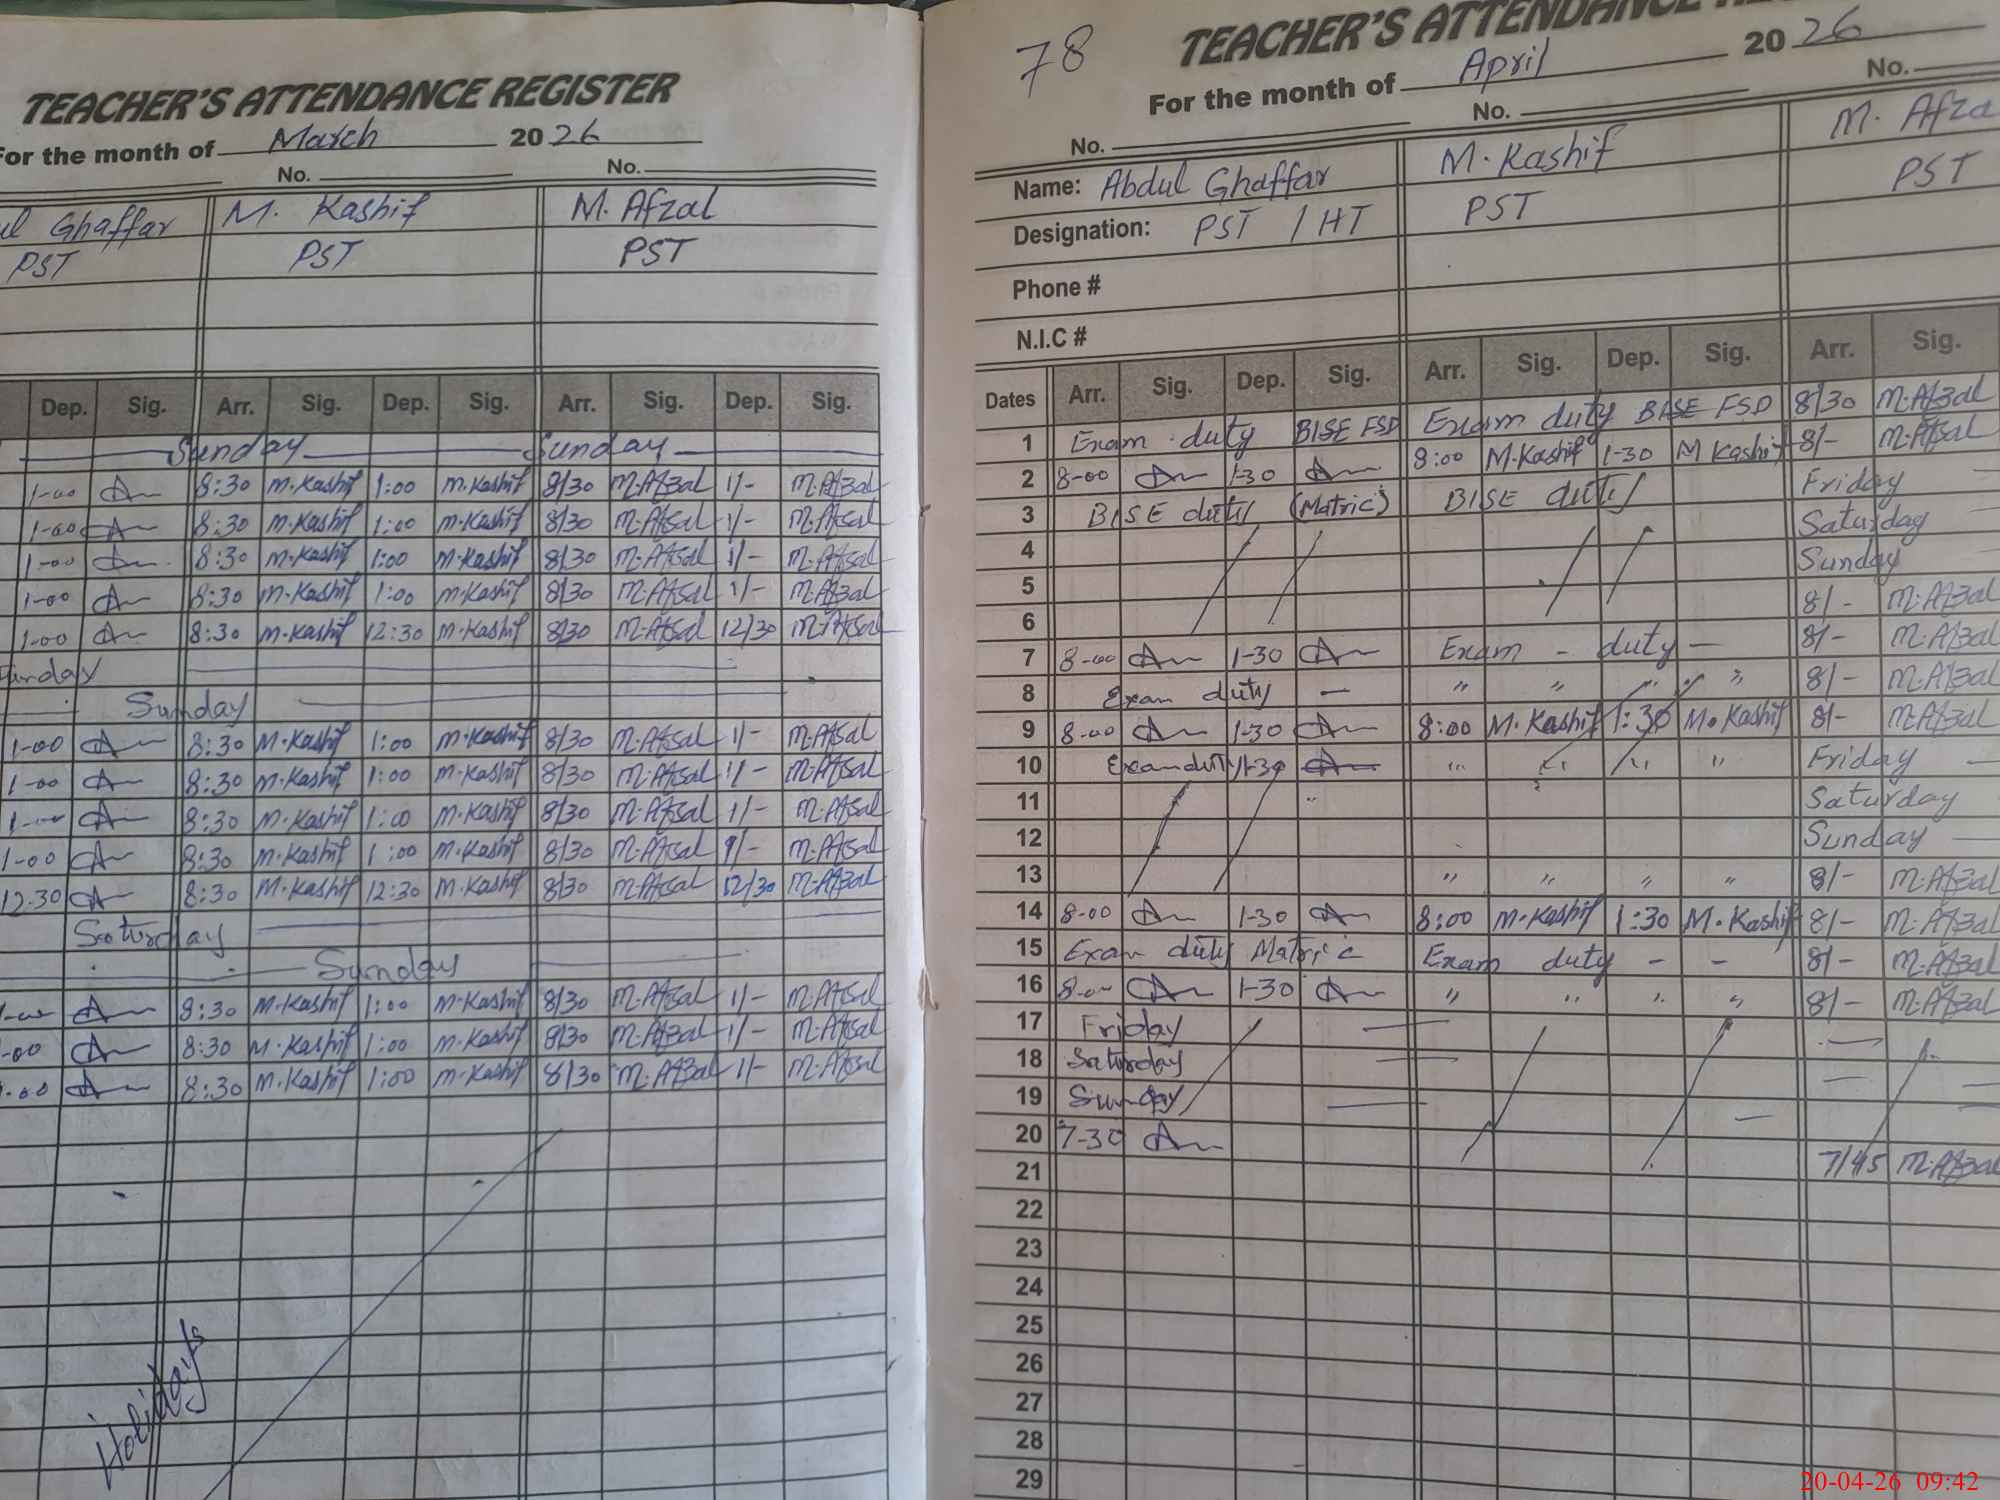 TEACHER'S ATTENDANCE REGISTER
For the month of March 2026
No. No.
ul Ghaffar M. Kashif M. Afzal
PST PST PST
Dep. Sig. Arr. Sig. Dep. Sig. Arr. Sig. Dep. Sig.
Sunday Sunday
1-00 8:30 M.Kashif 1:00 M.Kashif 8/30 M.Afzal 1/- M.Afzal
1-00 8:30 M.Kashif 1:00 M.Kashif 8/30 M.Afzal 1/- M.Afzal
1-00 8:30 M.Kashif 1:00 M.Kashif 8/30 M.Afzal 1/- M.Afzal
1-00 8:30 M.Kashif 1:00 M.Kashif 8/30 M.Afzal 1/- M.Afzal
1-00 8:30 M.Kashif 12:30 M.Kashif 8/30 M.Afzal 12/30 M.Afzal
turday
Sunday
1-00 8:30 M.Kashif 1:00 M.Kashif 8/30 M.Afzal 1/- M.Afzal
1-00 8:30 M.Kashif 1:00 M.Kashif 8/30 M.Afzal 1/- M.Afzal
1-00 8:30 M.Kashif 1:00 M.Kashif 8/30 M.Afzal 1/- M.Afzal
1-00 8:30 M.Kashif 1:00 M.Kashif 8/30 M.Afzal M.Afzal
12.30 8:30 M.Kashif 12:30 M.Kashif 8/30 M.Afzal 12/30 M.Afzal
Saturday
Sunday
-00 8:30 M.Kashif 1:00 M.Kashif 8/30 M.Afzal 1/- M.Afzal
-00 8:30 M.Kashif 1:00 M.Kashif 8/30 M.Afzal 1/- M.Afzal
.00 8:30 M.Kashif 1:00 M.Kashif 8/30 M.Afzal 1/- M.Afzal
Holidays
78
TEACHER'S ATTENDANCE RE
For the month of April 2026
No. No. No.
Name: Abdul Ghaffar M. Kashif M. Afza
Designation: PST / HT PST PST
Phone #
N.I.C #
Dates Arr. Sig. Dep. Sig. Arr. Sig. Dep. Sig. Arr. Sig.
1 Exam duty BISE FSD Exam duty BISE FSD 8/30 M.Afzal
2 8-00 1-30 8:00 M.Kashif 1-30 M Kashif 8/- M.Afzal
3 BISE duty (Matric) BISE duty Friday
4 Saturday
5 Sunday
6 8/- M.Afzal
7 8-00 1-30 Exam - duty - 8/- M.Afzal
8 Exam duty - " " " " 8/- M.Afzal
9 8-00 1-30 8:00 M.Kashif 1:30 M.Kashif 8/- M.Afzal
10 Exam duty 1-30 " " " " Friday
11 " Saturday
12 Sunday
13 " " " " 8/- M.Afzal
14 8-00 1-30 8:00 M.Kashif 1:30 M.Kashif 8/- M.Afzal
15 Exam duty Matric Exam duty - - 8/- M.Afzal
16 8-00 1-30 " " " " 8/- M.Afzal
17 Friday
18 Saturday
19 Sunday
20 7-30
21 7/45 M.Afzal
22
23
24
25
26
27
28
29
20-04-26 09:42